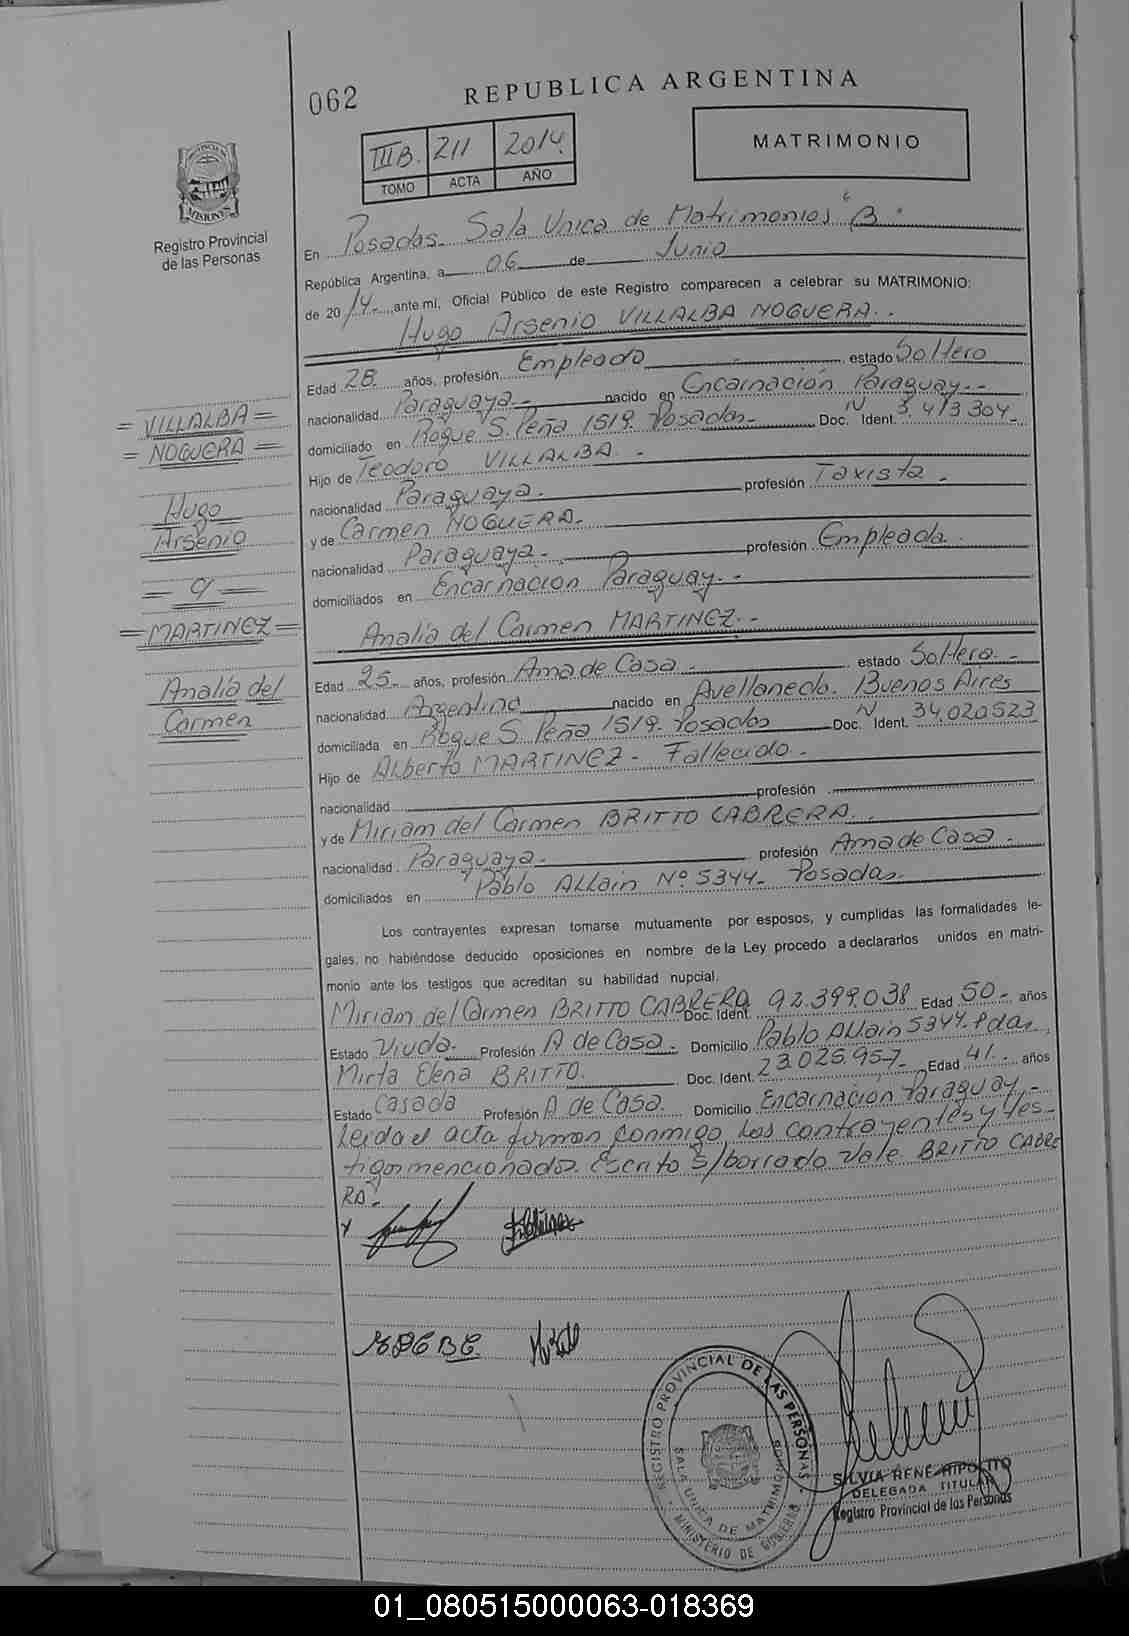 062
REPUBLICA ARGENTINA
IIIB. 211 2014.
TOMO ACTA AÑO
MATRIMONIO
PROVINCIA
MISIONES
Registro Provincial
de las Personas
En Posadas. Sala Unica de Matrimonios "B"
República Argentina, a 06 de Junio
de 2014. ante mí, Oficial Público de este Registro comparecen a celebrar su MATRIMONIO:
Hugo Arsenio VILLALBA NOGUERA.-
Edad 28 años, profesión Empleado estado Soltero
nacionalidad Paraguaya.- nacido en Encarnación Paraguay.-
domiciliado en Roque S. Peña 1519. Posadas.- Doc. N Ident. 3.413304-
Hijo de Teodoro VILLALBA.-
nacionalidad Paraguaya. profesión Taxista.
y de Carmen NOGUERA.
nacionalidad Paraguaya.- profesión Empleada.
domiciliados en Encarnación Paraguay.-
= VILLALBA =
= NOGUERA =
Hugo
Arsenio
= q =
= MARTINEZ =
Analía del
Carmen
Analía del Carmen MARTINEZ.-
Edad 25.- años, profesión Ama de Casa.- estado Soltera.-
nacionalidad Argentina nacido en Avellaneda. Buenos Aires
domiciliada en Roque S. Peña 1519. Posadas Doc. N Ident. 34.020.523
Hijo de Alberto MARTINEZ- Fallecido.-
nacionalidad profesión
y de Miriam del Carmen BRITTO CABRERA.
nacionalidad Paraguaya.- profesión Ama de Casa.-
domiciliados en Pablo Allain Nº 5344- Posadas.
Los contrayentes expresan tomarse mutuamente por esposos, y cumplidas las formalidades le-
gales, no habiéndose deducido oposiciones en nombre de la Ley procedo a declararlos unidos en matri-
monio ante los testigos que acreditan su habilidad nupcial.
Miriam del Carmen BRITTO CABRERA Doc. Ident. 92.399.038 Edad 50- años
Estado Viuda. Profesión A de Casa. Domicilio Pablo Allain 5344. Pdas.
Mirta Elena BRITTO. Doc. Ident. 23.025.957- Edad 41.- años
Estado Casada Profesión A de Casa. Domicilio Encarnación Paraguay.-
Leida el acta firman conmigo Los contrayentes y tes-
tigos mencionados. Escrito s/borrado Vale BRITTO CABRE
RA.-
REGISTRO PROVINCIAL DE LAS PERSONAS
SALA UNICA DE MATRIMONIOS
MINISTERIO DE GOBIERNO
SILVIA RENE HIPOLITO
DELEGADA TITULAR
Registro Provincial de las Personas
01_080515000063-018369